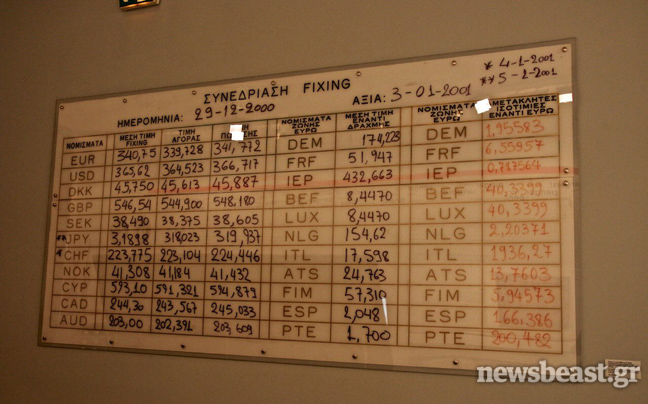 ΣΥΝΕΔΡΙΑΣΗ FIXING
* 4-1-2001
** 5-1-2001
ΗΜΕΡΟΜΗΝΙΑ: 29-12-2000 ΑΞΙΑ: 3-01-2001
ΝΟΜΙΣΜΑΤΑ ΜΕΣΗ ΤΙΜΗ FIXING ΤΙΜΗ ΑΓΟΡΑΣ ΝΟΜΙΣΜΑΤΑ ΖΩΝΗΣ ΕΥΡΩ ΜΕΣΗ ΤΙΜΗ ΕΝΑΝΤΙ ΔΡΑΧΜΗΣ ΝΟΜΙΣΜΑΤΑ ΖΩΝΗΣ ΕΥΡΩ ΑΜΕΤΑΚΛΗΤΕΣ ΙΣΟΤΙΜΙΕΣ ΕΝΑΝΤΙ ΕΥΡΩ
EUR 340,75 339,728 341,772 DEM 174,223 DEM 1,95583
USD 365,62 364,523 366,717 FRF 51,947 FRF 6,55957
DKK 45,750 45,613 45,887 IEP 432,663 IEP 0,787564
GBP 546,54 544,900 548,180 BEF 8,4470 BEF 40,3399
SEK 38,490 38,375 38,605 LUX 8,4470 LUX 40,3399
**JPY 3,1898 318,023 319,937 NLG 154,62 NLG 2,20371
*CHF 223,775 223,104 224,446 ITL 17,598 ITL 1936,27
NOK 41,308 41,184 41,432 ATS 24,763 ATS 13,7603
CYP 593,10 591,321 594,879 FIM 57,310 FIM 5,94573
CAD 244,30 243,567 245,033 ESP 2,048 ESP 166,386
AUD 203,00 202,391 203,609 PTE 1,700 PTE 200,482
newsbeast.gr